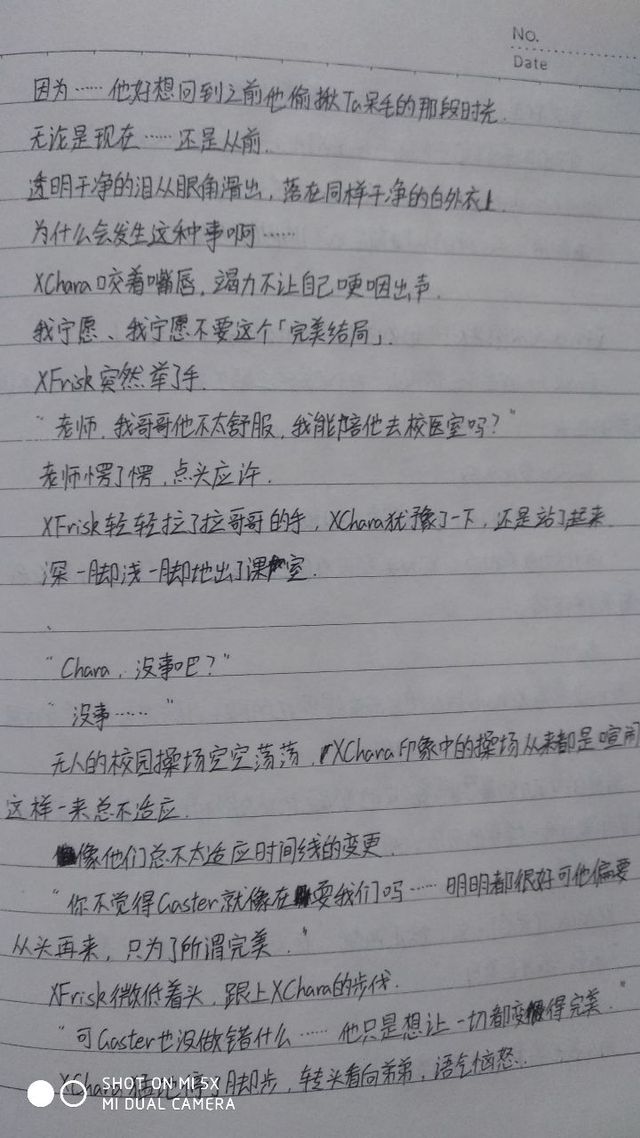 NO.
Date
因为……他好想回到之前他偷揪Ta呆毛的那段时光.
无论是现在……还是从前.
透明干净的泪从眼角滑出，落在同样干净的白外衣上.
为什么会发生这种事啊……
XChara咬着嘴唇，竭力不让自己哽咽出声.
我宁愿、我宁愿不要这个「完美结局」.
XFrisk突然举了手.
“老师，我哥哥他不太舒服，我能陪他去校医室吗？”
老师愣了愣，点头应许.
XFrisk轻轻拉了拉哥哥的手，XChara犹豫了一下，还是站了起来.
深一脚浅一脚地出了课室.
“Chara，没事吧？”
“没事……”
无人的校园操场空空荡荡，XChara印象中的操场从来都是喧闹
这样一来总不适应.
像他们总不太适应时间线的变更.
“你不觉得Gaster就像在耍我们吗……明明都很好可他偏要
从头再来，只为了所谓完美.”
XFrisk微低着头，跟上XChara的步伐.
“可Gaster也没做错什么……他只是想让一切都变得完美.”
XChara猛地停下脚步，转头看向弟弟，语气恼怒.
SHOT ON MI 5X
MI DUAL CAMERA